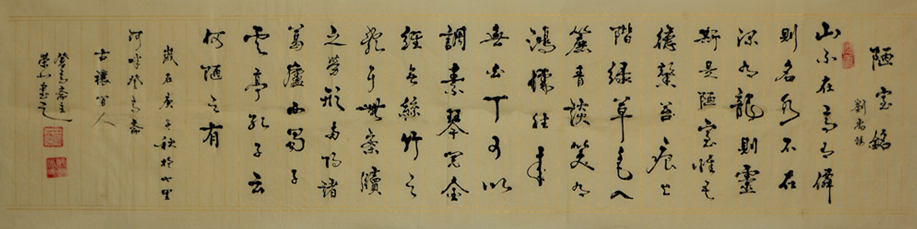 陋室銘
劉禹錫
山不在高有僊
則名水不在
深有龍則靈
斯是陋室惟吾
德馨苔痕上
階綠草色入
簾青談笑有
鴻儒往來
無白丁可以
調素琴閱金
經無絲竹之
亂耳無案牘
之勞形南陽諸
葛廬西蜀子
雲亭孔子云
何陋之有
歲在庚子秋於七里
河畔登高齋
古 人
登高齋主
山書之